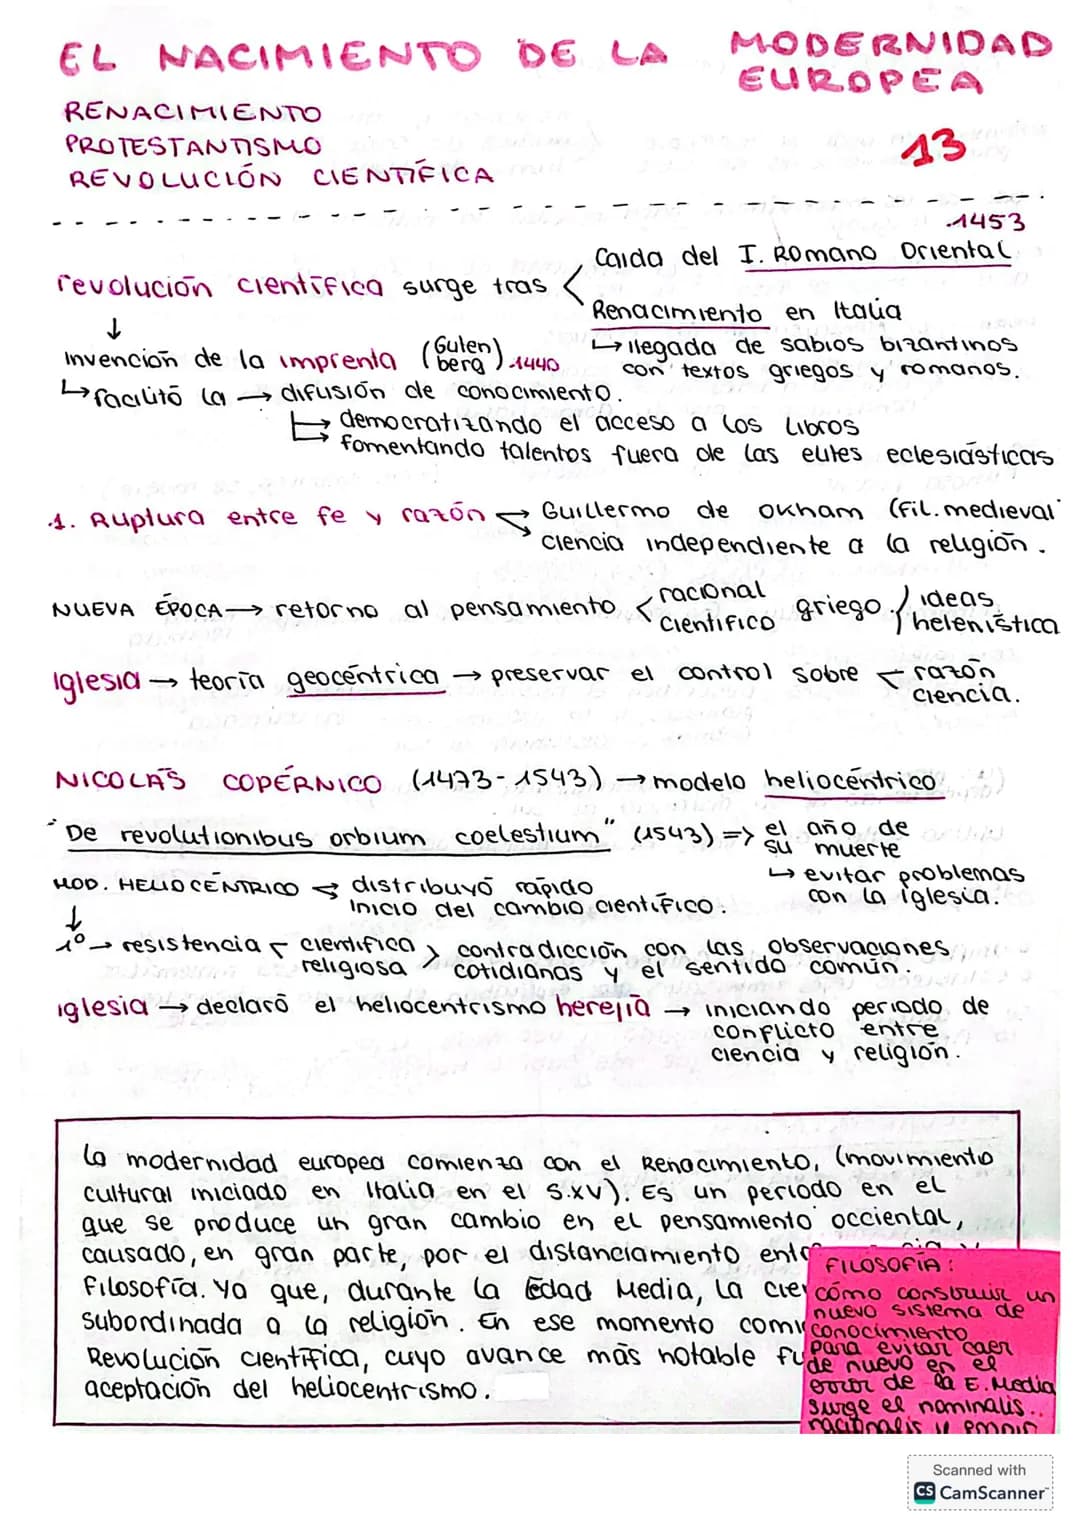 EL NACIMIENTO DE LA MODERNIDAD
EUROPEA
RENACIMIENTO
PROTESTANTISMO
REVOLUCIÓN CIENTÍFICA
13
1453
revolución científica surge tras < Caída del I. Romano Oriental
Renacimiento en Italia
↓
↳ llegada de sabios bizantinos
con textos griegos y romanos.
Invención de la imprenta (Gutenberg) 1440
↳ facilitó la → difusión de conocimiento.
↳ democratizando el acceso a los libros
↳ fomentando talentos fuera de las elites eclesiásticas
1. Ruptura entre fe y razón → Guillermo de Okham (Fil. medieval
→ ciencia independiente a la religión.
NUEVA ÉPOCA → retorno al pensamiento < racional
científico griego. / ideas
helenística
Iglesia → teoría geocéntrica → preservar el control sobre razón
ciencia.
NICOLÁS COPÉRNICO (1473-1543) → modelo heliocéntrico
"De revolutionibus orbium coelestium" (1543) => el año de
su muerte
↳ evitar problemas
con la iglesia.
MOD. HELIOCÉNTRICO distribuyó rápido
inicio del cambio científico.
↓
1º → resistencia científica
religiosa > contradicción con las observaciones
cotidianas y el sentido común.
iglesia → declaró el heliocentrismo herejía → iniciando periodo de
conflicto entre
ciencia y religión.
La modernidad europea comienza con el Renacimiento, (movimiento
cultural iniciado en Italia en el S.XV). Es un periodo en el
que se produce un gran cambio en el pensamiento occiental,
causado, en gran parte, por el distanciamiento
Filosofía. Ya que, durante la Edad Media, la
Subordinada a la religión. En ese momento
Revolución científica, cuyo avance más notable
aceptación del heliocentrismo.
FILOSOFÍA:
cómo construir un
nuevo sistema de
conocimiento
para evitar caer
de nuevo en el
error de la E. Media
surge el nominalis..
racionalis y
Scanned with
CS CamScanner